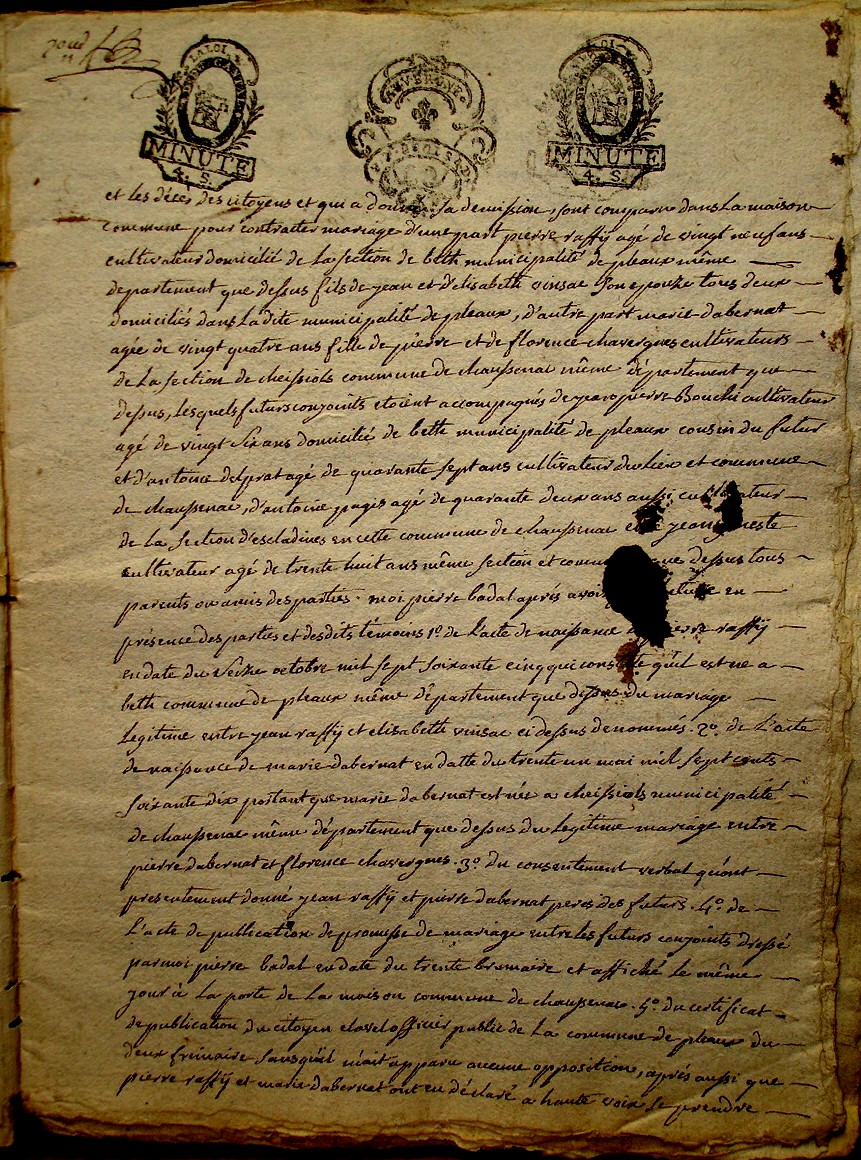 LA LOI
MINUTE
4. S.
AUVERGNE
LA LOI
MINUTE
4. S.
et les décès des citoyens et qui a donné sa demission, sont comparu dans la maison
commune pour contracter mariage d'une part pierre raffÿ agé de vingt neuf ans
cultivateur domicilié de la section de beth municipalité de pleaux même
departement que dessus fils de jean et d'elisabeth vinsac son epouze tous deux
domiciliés dans la dite municipalité de pleaux, d'autre part marie dabernat
agée de vingt quatre ans fille de pierre et de florence chavergnes cultivateurs
de la section de cheissiols commune de chaussenac même département que
dessus, lesquels futurs conjoints etoient accompagnés de jean pierre Bouchi cultivateur
agé de vingt six ans domicilié de beth municipalité de pleaux cousin du futur
et d'antoine delprat agé de quarante sept ans cultivateur du lieu et commune
de chaussenac, d'antoine pagis agé de quarante deux ans aussi cultivateur
de la section d'escladines en cette commune de chaussenac et jean
cultivateur agé de trente huit ans même section et commune que dessus tous
parents ou amis des parties. moi pierre badal après avoir lecture en
présence des parties et desdits témoins 1o. de l'acte de naissance de pierre raffÿ
en date du seize octobre mil sept soixante cinq qui constate qu'il est né a
beth commune de pleaux même département que dessus du mariage
legitime entre jean raffÿ et elisabeth vinsac ci dessus denommés. 2o. de l'acte
de naissance de marie dabernat en datte du trente un mai mil sept cents
soixante dix portant que marie dabernat est née a cheissiols municipalité
de chaussenac même département que dessus du legitime mariage entre
pierre dabernat et florence chavergnes. 3o. du consentement verbal qu'ont
presentement donné jean raffÿ et pierre dabernat peres des futurs. 4o. de
l'acte de publication de promesse de mariage entre les futurs conjoints dressé
par moi pierre badal en date du trente brumaire et affiché le même
jour à la porte de la maison commune de chaussenac. 5o. du certificat
de publication du citoyen clavel officier public de la commune de pleaux du
deux frimaire sans qu'il m'ait apparu aucune opposition, après aussi que
pierre raffÿ et marie dabernat ont eu déclaré a haute voix se prendre